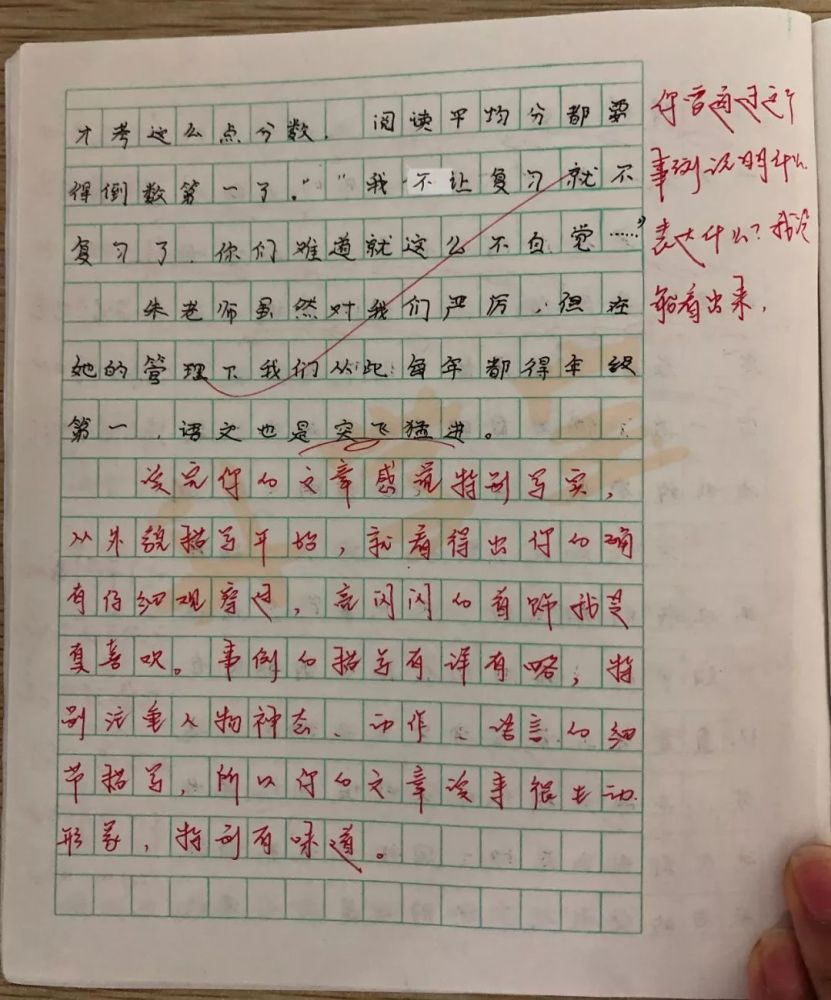 才考这么点分数，阅读平均分都要
得倒数第一了。""我不让复习就不
复习了，你们难道就这么不自觉……"
朱老师虽然对我们严厉，但在
她的管理下我们从此每年都得年级
第一，语文也是突飞猛进。
读完你的文章感觉特别写实，
从外貌描写开始，就看得出你的确
有仔细观察过，亮闪闪的首饰我是
真喜欢。事例的描写有详有略，特
别注重人物神态、动作、语言的细
节描写，所以你的文章读来很生动
形象，特别有味道。
你当通过这个
事例说明什么
表达什么？我没
能看出来，